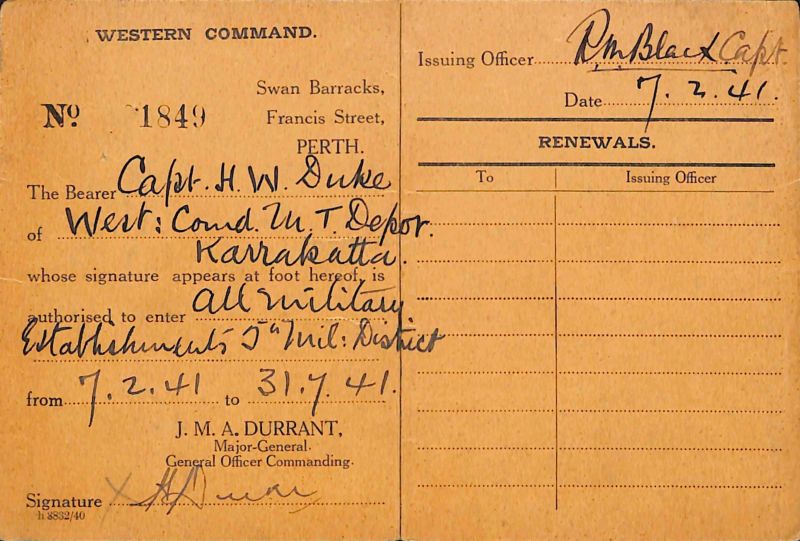 WESTERN COMMAND.
Swan Barracks,
No 1849 Francis Street,
PERTH.
The Bearer Capt. H. W. Duke
of West: Comd. M. T. Depot.
Karrakatta.
whose signature appears at foot hereof, is
authorised to enter all military
Establishments 5th Mil: District
from 7.2.41 to 31.7.41.
J. M. A. DURRANT,
Major-General.
General Officer Commanding.
Signature X H Duke
h 3832/40
Issuing Officer R. M. Black Capt.
Date 7.2.41.
RENEWALS.
To Issuing Officer